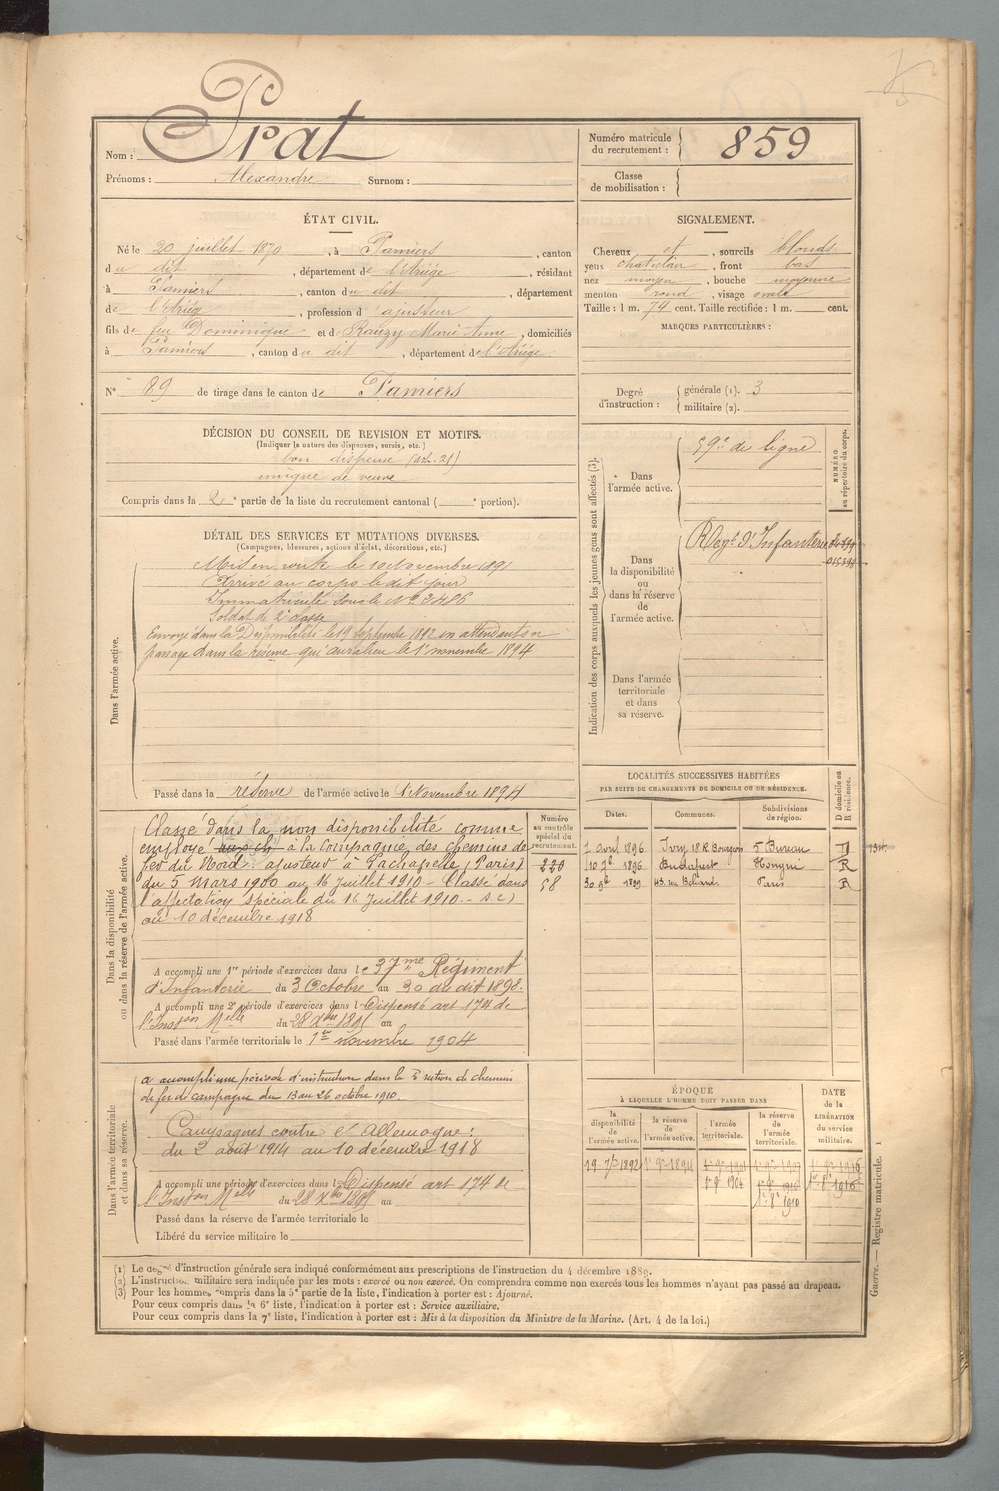 Nom : Prat
Prénoms : Alexandre Surnom :
Numéro matricule du recrutement : 859
Classe de mobilisation :
ÉTAT CIVIL.
Né le 20 juillet 1870, à Pamiers, canton
du dit, département de l'Ariège, résidant
à Pamiers, canton du dit, département
de l'Ariège, profession d'ajusteur
fils de feu Dominique et de Rauzy Marie Anne, domiciliés
à Pamiers, canton du dit, département de l'Ariège
SIGNALEMENT.
Cheveux et, sourcils blonds
yeux chat. clair, front bas
nez moyen, bouche moyenne
menton rond, visage ovale
Taille : 1 m. 74 cent. Taille rectifiée : 1 m. cent.
MARQUES PARTICULIÈRES :
N° 89 de tirage dans le canton de Pamiers
Degré d'instruction : générale (1). 3
militaire (2).
DÉCISION DU CONSEIL DE REVISION ET MOTIFS.
(Indiquer la nature des dispenses, sursis, etc.)
bon dispensé (art. 21)
unique de veuve
Compris dans la 2e partie de la liste du recrutement cantonal ( e portion).
DÉTAIL DES SERVICES ET MUTATIONS DIVERSES.
(Campagnes, blessures, actions d'éclat, décorations, etc.)
Dans l'armée active.
Mis en route le 10 Novembre 1891
Arrivé au corps le dit jour
Immatriculé sous le N° 2486
Soldat de 2e classe
Envoyé dans la Disponibilité le 19 Septembre 1892 en attendant son
passage dans la réserve qui aura lieu le 1er novembre 1894
Passé dans la réserve de l'armée active le 1 Novembre 1894
Indication des corps auxquels les jeunes gens sont affectés (3).
NUMÉRO au répertoire du corps.
Dans l'armée active.
59e de ligne
Dans la disponibilité ou dans la réserve de l'armée active.
Régt d'Infanterie
015398
Dans l'armée territoriale et dans sa réserve.
LOCALITÉS SUCCESSIVES HABITÉES
PAR SUITE DE CHANGEMENTS DE DOMICILE OU DE RÉSIDENCE.
D domicile ou R résidence.
Dates. Communes. Subdivisions de région.
1 avril 1896 Ivry 18 R. Bourgeois 5 Bureau D
10 7e 1896 Budapest Hongrie R
30 9e 1899 43 rue Béliard Paris R
Dans la disponibilité ou dans la réserve de l'armée active.
Numéro au contrôle spécial du recrutement.
220
58
Classé dans la non disponibilité comme
employé à la Compagnie des chemins de
fer du Nord : ajusteur à Lachapelle (Paris)
du 5 Mars 1900 au 16 Juillet 1910 - Classé dans
l'affectation spéciale du 16 Juillet 1910 - s.c)
au 10 décembre 1918
A accompli une 1re période d'exercices dans le 37me Régiment
d'Infanterie du 3 Octobre au 30 du dit 1898.
A accompli une 2e période d'exercices dans l Dispensé art 174 de
l'Inston Melle du 28 Xbre 1895 au
Passé dans l'armée territoriale le 1er novembre 1904
Dans l'armée territoriale et dans sa réserve.
a accompli une période d'instruction dans la 5 section de chemin
de fer de campagne du 13 au 26 octobre 1910.
Campagnes contre l'Allemagne :
du 2 août 1914 au 10 décembre 1918
A accompli une période d'exercices dans l Dispensé art 174 de
l'Inston Melle du 28 Xbre 1895 au
Passé dans la réserve de l'armée territoriale le
Libéré du service militaire le
ÉPOQUE
À LAQUELLE L'HOMME DOIT PASSER DANS
la disponibilité de l'armée active. la réserve de l'armée active. l'armée territoriale. la réserve de l'armée territoriale.
DATE de la LIBÉRATION du service militaire.
19 7e 1892 1er 9e 1894 1er 9e 1901 1er 9e 1907 1er 9e 1916
1er 9e 1904 1er 9e 1910
1er 8e 1910
(1) Le degré d'instruction générale sera indiqué conformément aux prescriptions de l'instruction du 4 décembre 1889.
(2) L'instruction militaire sera indiquée par les mots : exercé ou non exercé. On comprendra comme non exercés tous les hommes n'ayant pas passé au drapeau.
(3) Pour les hommes compris dans la 5e partie de la liste, l'indication à porter est : Ajourné.
Pour ceux compris dans la 6e liste, l'indication à porter est : Service auxiliaire.
Pour ceux compris dans la 7e liste, l'indication à porter est : Mis à la disposition du Ministre de la Marine. (Art. 4 de la loi.)
Guerre. — Registre matricule. 1